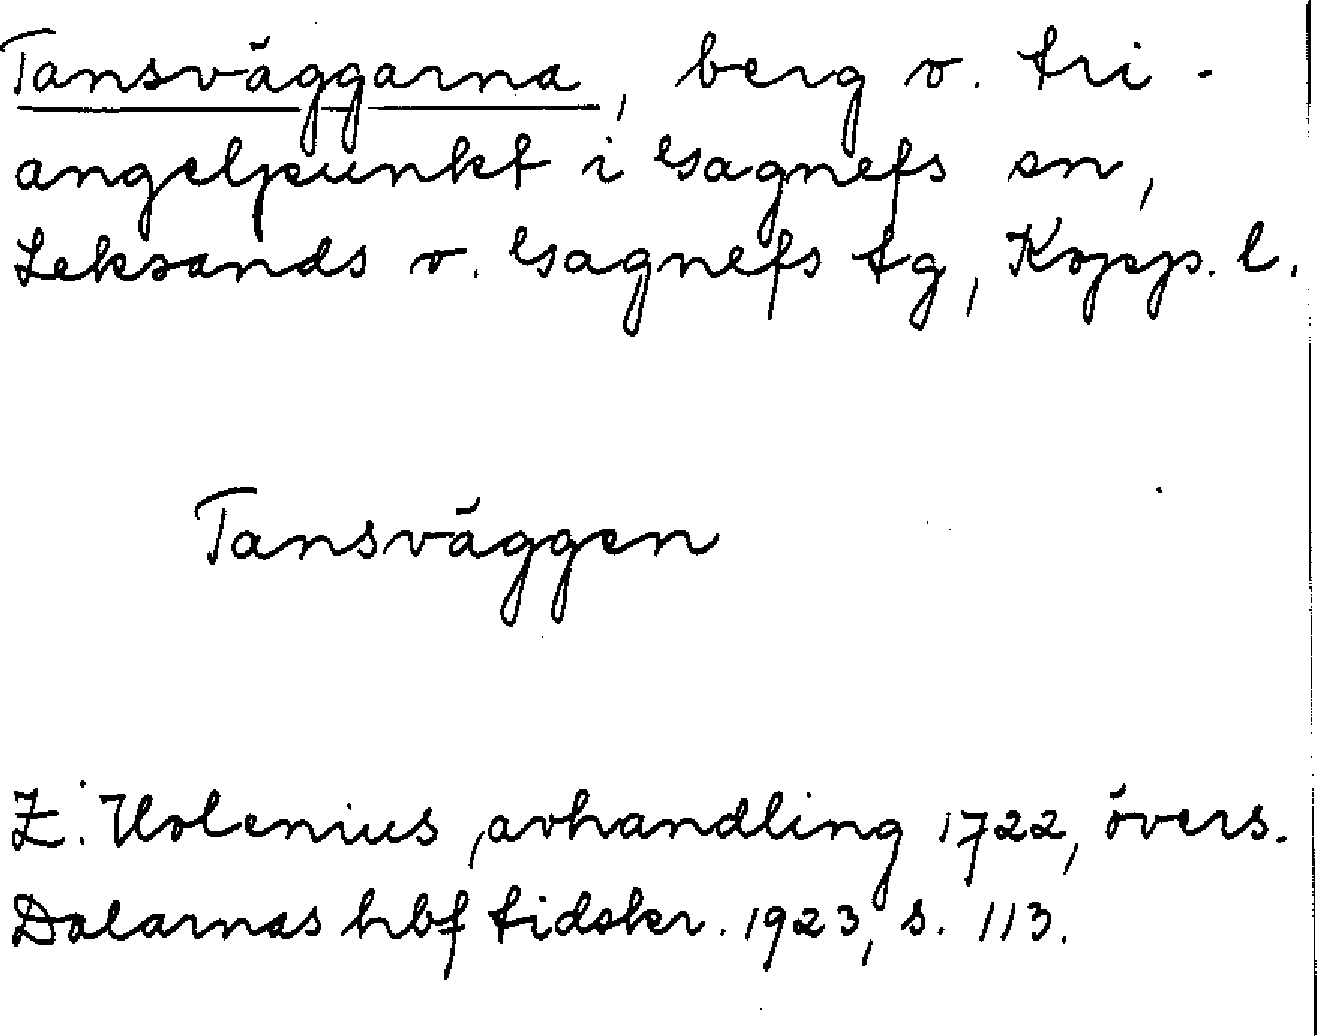 Tansväggarna, berg o. tri-
angelpunkt i Gagnefs sn,
Leksands o. Gagnefs tg, Kopp. l.
Tansväggen
Z. Holenius, avhandling 1722, övers.
Dalarnas hbf tidskr. 1923, s. 113.